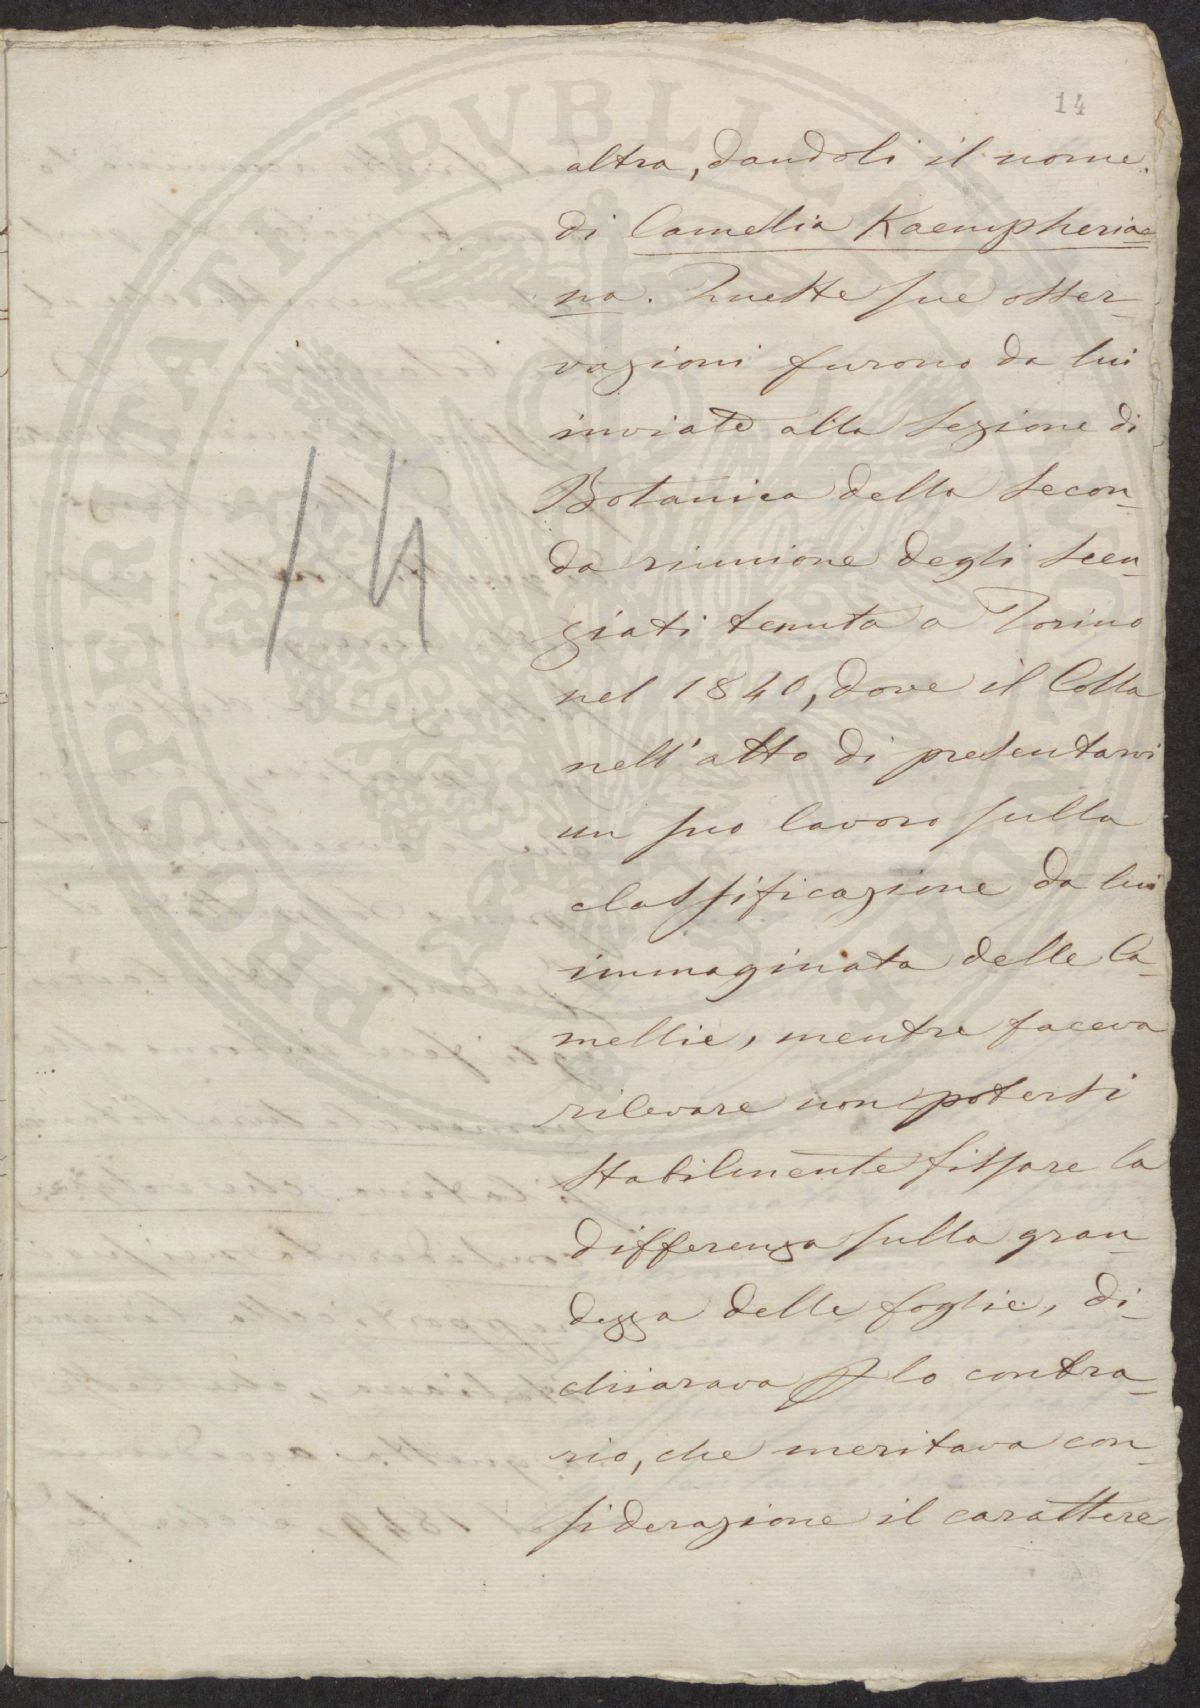 14
altra, dandoli il nome
di Camellia Kaempheria=
na. Queste sue osser-
vazioni furono da lui
inviate alla Sezione di
Botanica della Secon-
da riunione degli Scen-
ziati tenuta a Torino
nel 1840, dove il Colla
nell'atto di presentarvi
un suo lavoro sulla
classificazione da lui
immaginata delle Ca-
mellie, mentre faceva
rilevare non potersi
stabilmente fissare la
differenza sulla gran-
dezza delle foglie, di-
chiarava lo contra-
rio, che meritava con-
siderazione il carattere
14
PROSPERITATI PUBLICAE